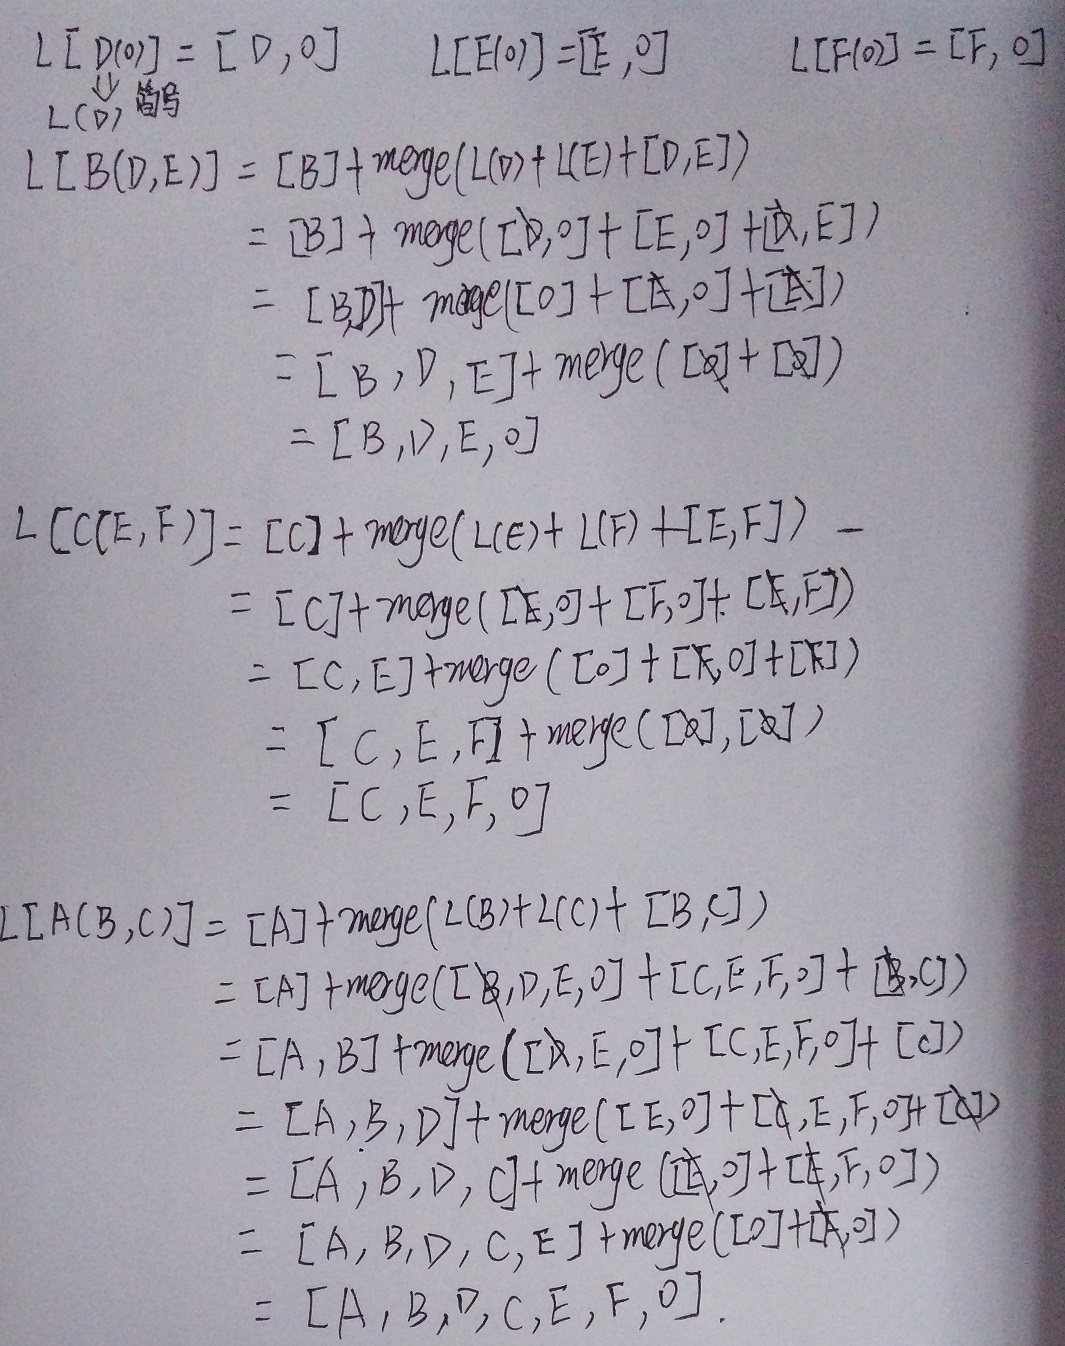 L[D(O)] = [D,O] L[E(O)]=[E,O] L[F(O)] = [F,O]
L(D) 简写
L[B(D,E)] = [B]+merge(L(D)+L(E)+[D,E])
= [B]+ merge([D,O]+[E,O]+[D,E])
= [B,D]+ merge([O]+[E,O]+[E])
= [B,D,E]+merge([O]+[O])
= [B,D,E,O]
L[C(E,F)]= [C]+merge(L(E)+L(F)+[E,F])
= [C]+merge([E,O]+[F,O]+[E,F])
= [C,E]+merge([O]+[F,O]+[F])
= [C,E,F]+merge([O],[O])
= [C,E,F,O]
L[A(B,C)] = [A]+merge(L(B)+L(C)+[B,C])
= [A]+merge([B,D,E,O]+[C,E,F,O]+[B,C])
= [A,B]+merge([D,E,O]+[C,E,F,O]+[C])
= [A,B,D]+merge([E,O]+[C,E,F,O]+[C])
= [A,B,D,C]+merge([E,O]+[E,F,O])
= [A,B,D,C,E]+merge([O]+[F,O])
= [A,B,D,C,E,F,O].